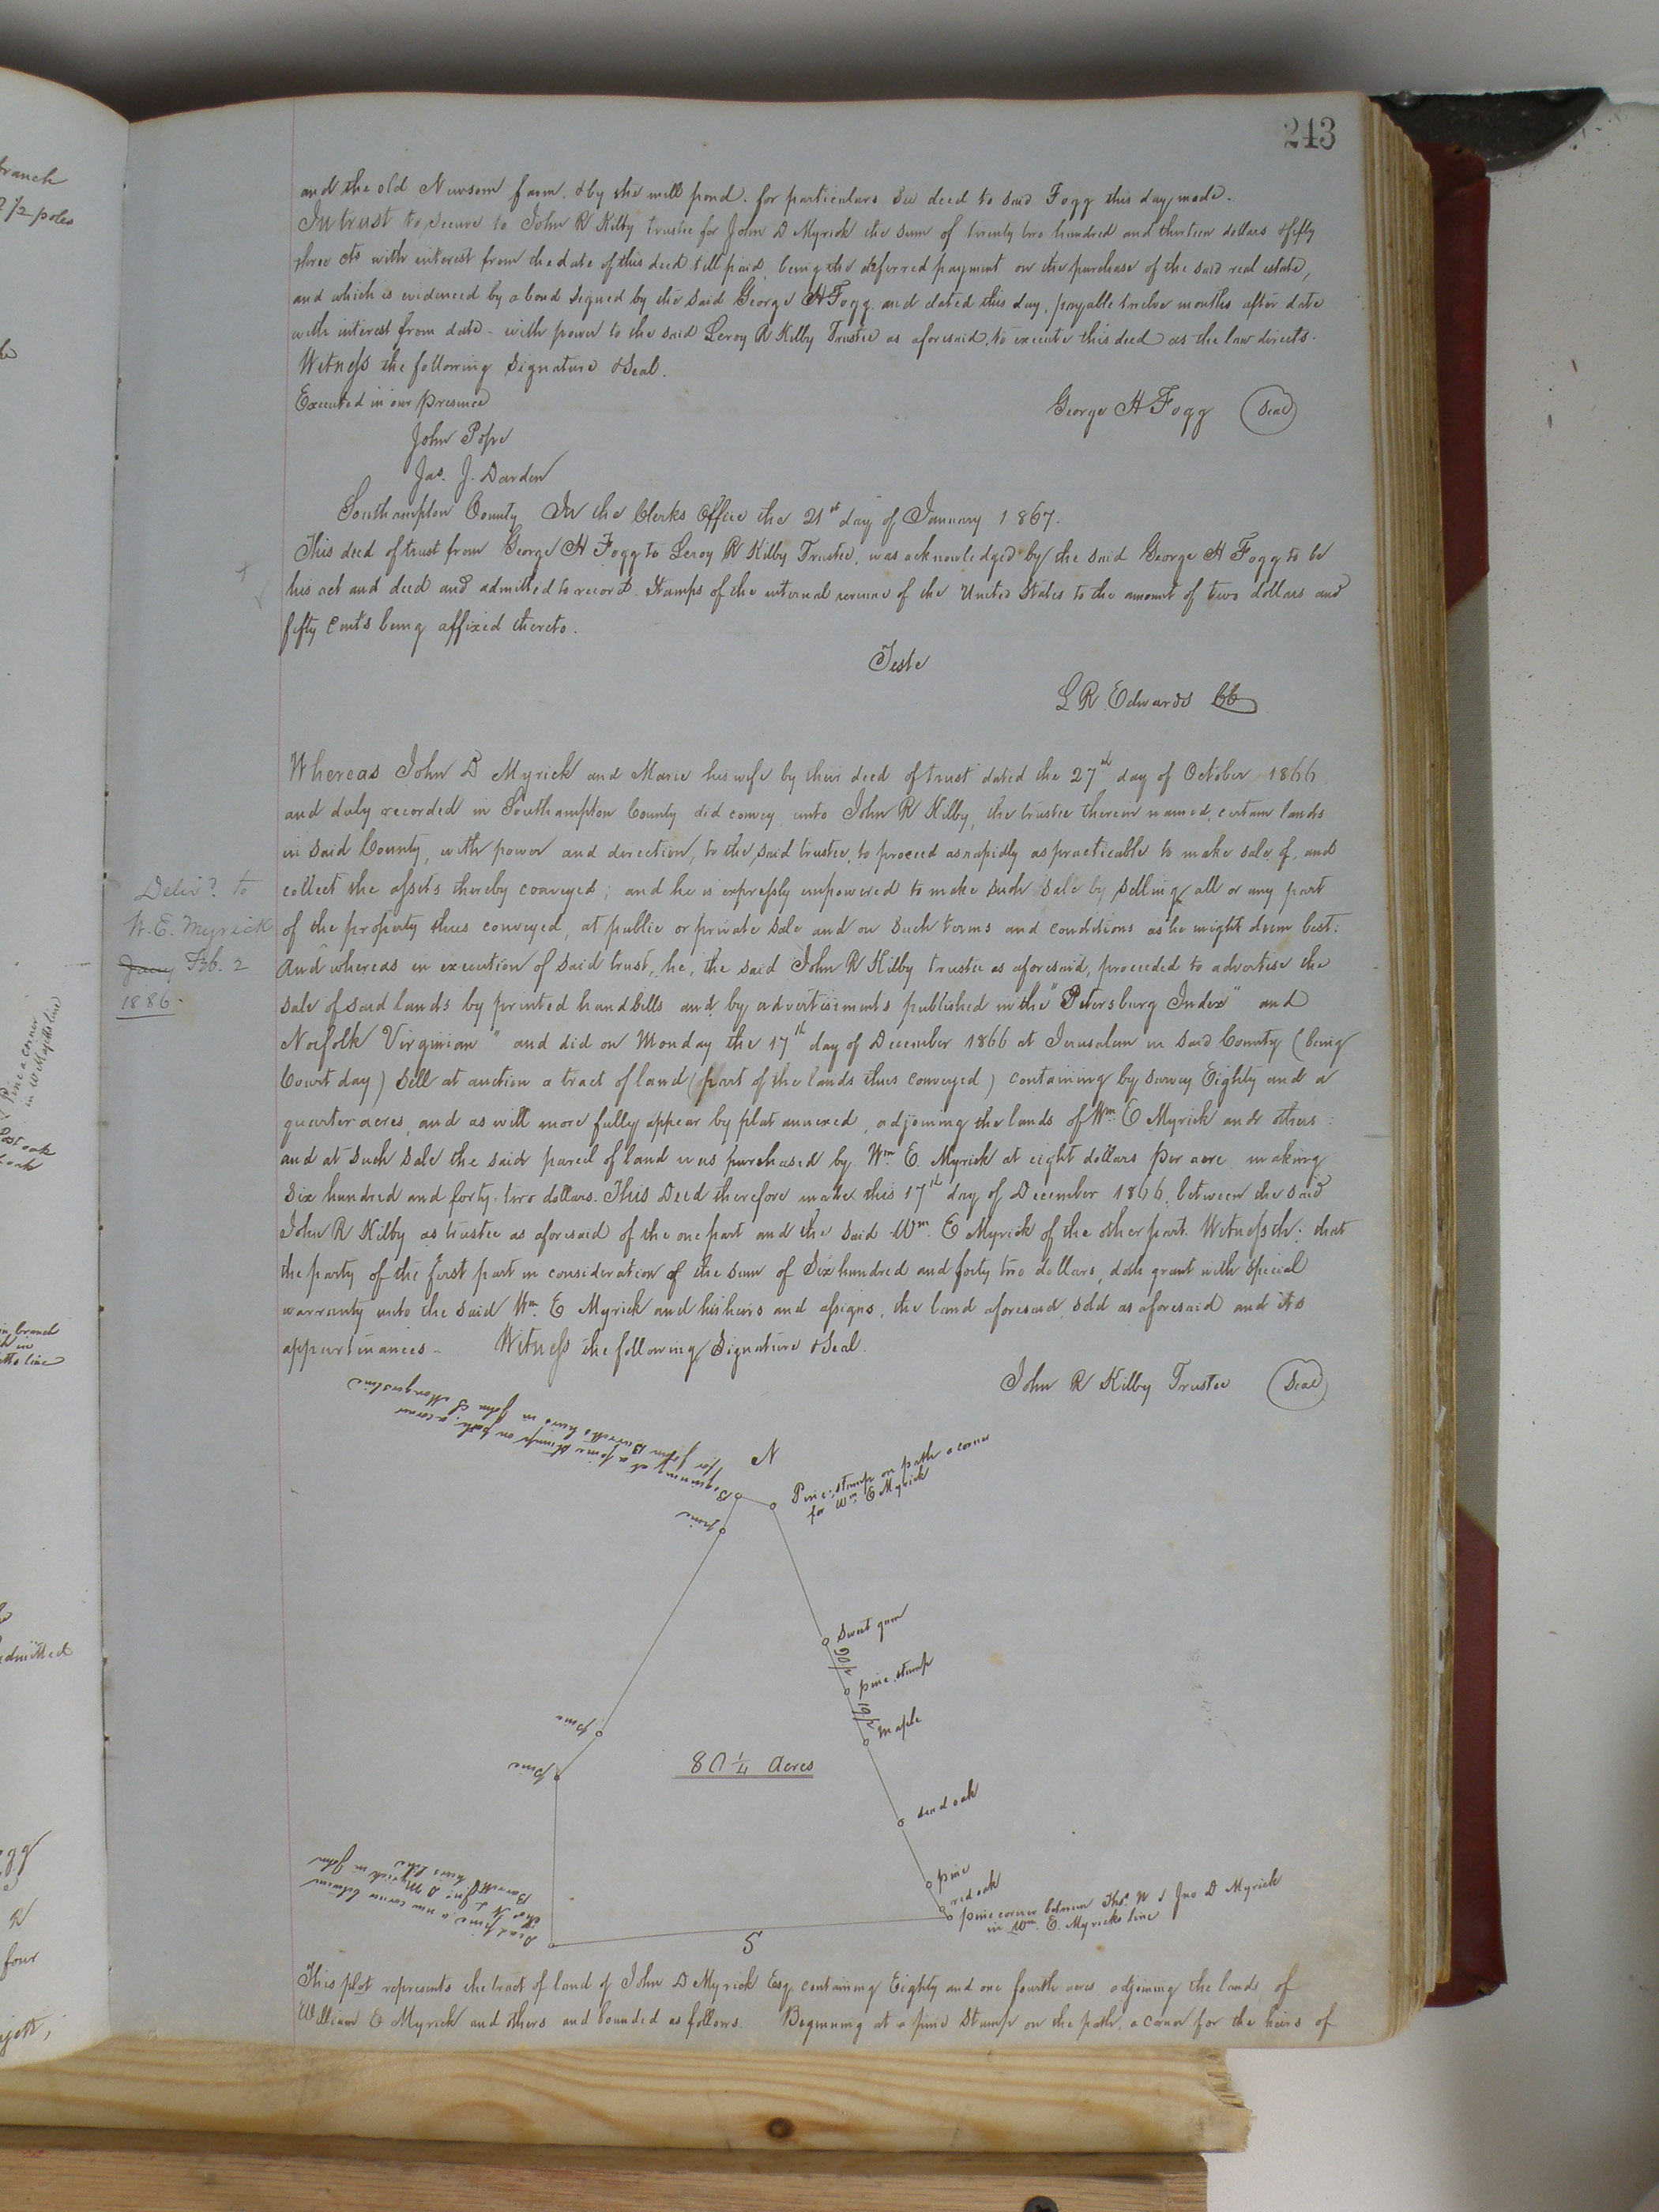 243
and the old Newsom farm, & by the mill pond. for particulars see deed to said Fogg this day made.
In trust to secure to John R Kilby trustee for John D Myrick the sum of twenty two hundred and thirteen dollars & fifty
three cts with interest from the date of this deed till paid, being the deferred payment on the purchase of the said real estate,
and which is evidenced by a bond signed by the said George H Fogg and dated this day, payable twelve months after date
with interest from date - with power to the said Leroy R Kilby Trustee as aforesaid, to execute this deed as the law directs.
Witness the following signature & seal.
Executed in our Presence
George H Fogg (Seal)
John Pope
Jas. J. Darden
Southampton County In the Clerks Office the 21st day of January 1867.
This deed of trust from George H Fogg to Leroy R Kilby Trustee, was acknowledged by the said George H Fogg to be
his act and deed and admitted to record. Stamps of the internal revenue of the United States to the amount of two dollars and
fifty cents being affixed thereto.
Teste
L R Edwards CC
Whereas John D Myrick and Marie his wife by their deed of trust dated the 27th day of October 1866
and duly recorded in Southampton County did convey unto John R Kilby, the trustee therein named, certain lands
in said County, with power and direction, to the said trustee, to proceed as rapidly as practicable to make sale of, and
collect the assets thereby conveyed; and he is expressly empowered to make such sale by selling all or any part
of the property thus conveyed, at public or private sale and on such terms and conditions as he might deem best:
And whereas in execution of said trust, he, the said John R Kilby trustee as aforesaid, proceeded to advertise the
sale of said lands by printed handbills and by advertisements published in the "Petersburg Index" and
Norfolk Virginian" and did on Monday the 17th day of December 1866 at Jerusalem in said County (being
Court day) sell at auction a tract of land (part of the lands thus conveyed) containing by survey Eighty and a
quarter acres, and as will more fully appear by plat annexed, adjoining the lands of Wm. E Myrick and others:
and at such sale the said parcel of land was purchased by Wm. E. Myrick at eight dollars per acre making
Six hundred and forty-two dollars. This Deed therefore made this 17th day of December 1866, between the said
John R Kilby as trustee as aforesaid of the one part and the said Wm. E Myrick of the other part. Witnesseth: that
the party of the first part in consideration of the sum of Six hundred and forty two dollars, doth grant with special
warranty unto the said Wm. E Myrick and his heirs and assigns, the land aforesaid, sold as aforesaid and its
appurtinances - Witness the following Signature & Seal.
John R Kilby Trustee (Seal)
Deliv? to
W. E. Myrick
Jany Feb. 2
1886.
Beginning at a pine stump on path, a corner
for John Barretts heirs in John S Mongers line
N
Pine stump on path a corner
for Wm E Myrick
pine
Sweet gum
90p
pine stump
19p
maple
pine
pine
80 1/4 Acres
dead oak
pine
red oak
pine corner between Thos. N & Jno D Myrick
in Wm. E. Myricks line
Dead pine, a new corner between
Thos N & Jno D Myrick in John
Barretts heirs line
S
This plot represents the tract of land of John D Myrick Esq. containing Eighty and one fourth acres adjoining the lands of
William E Myrick and others and bounded as follows. Beginning at a pine stump on the path, a corner for the heirs of